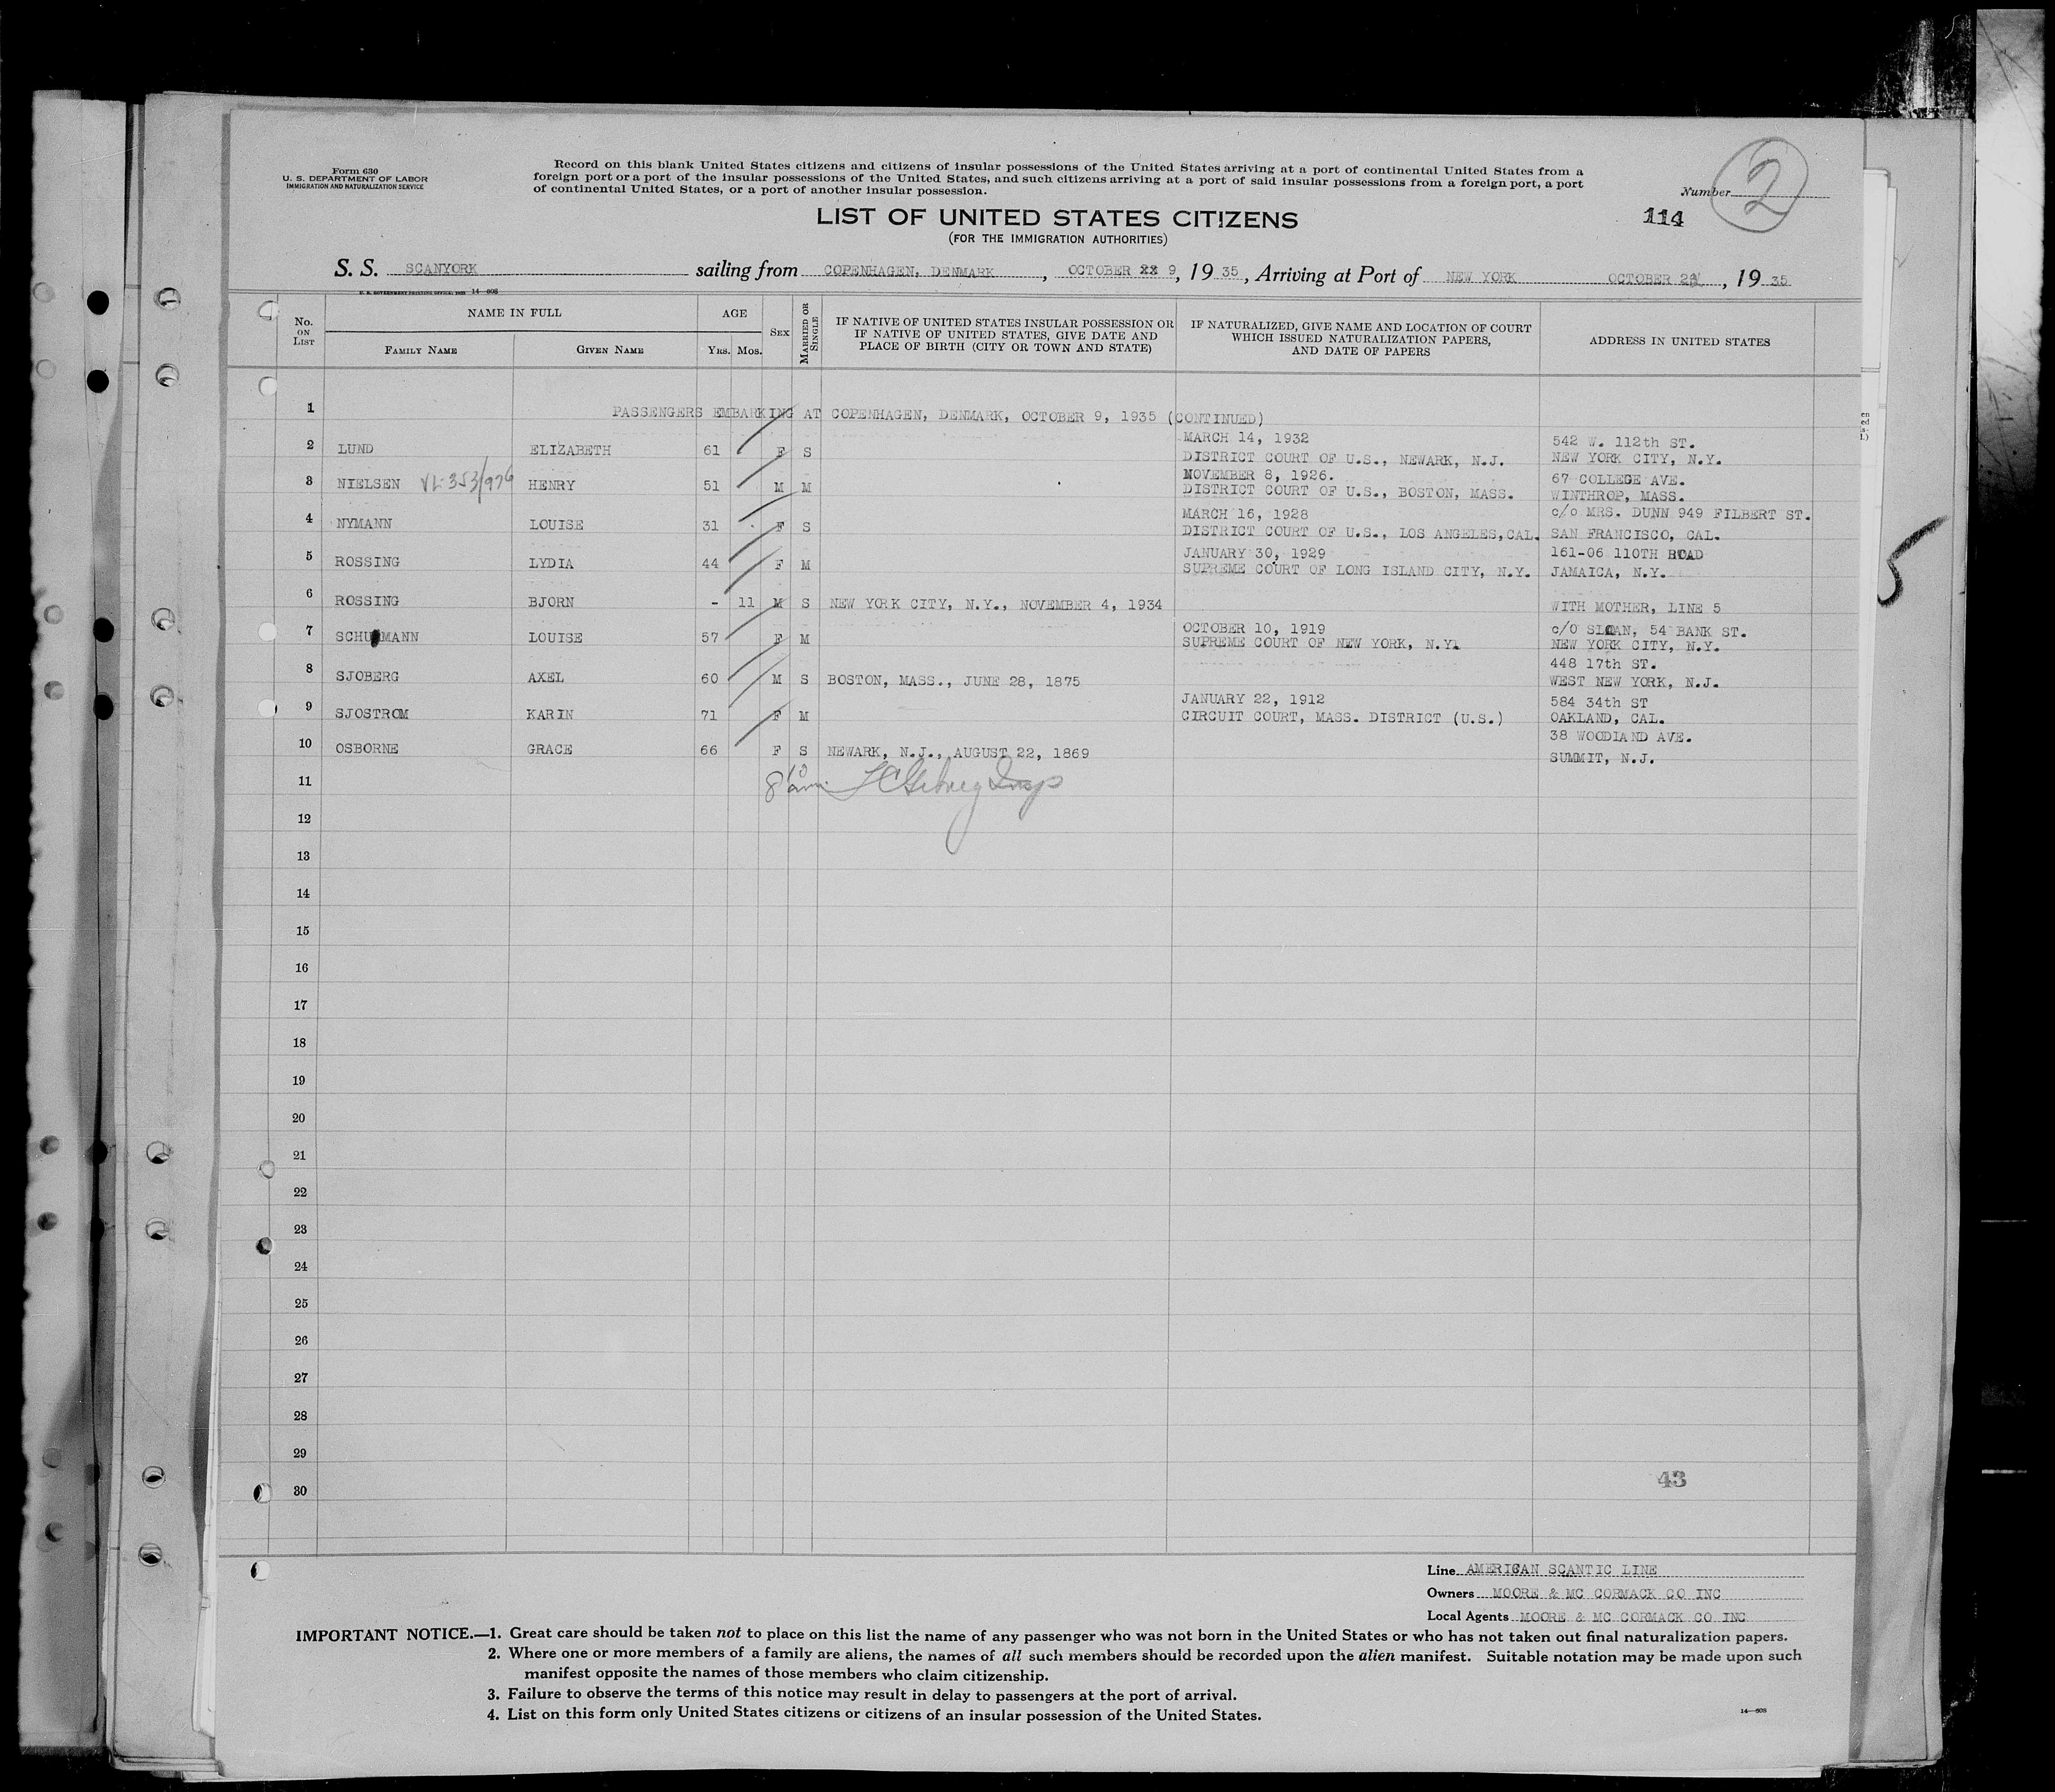 Form 630
U. S. DEPARTMENT OF LABOR
IMMIGRATION AND NATURALIZATION SERVICE
Record on this blank United States citizens and citizens of insular possessions of the United States arriving at a port of continental United States from a
foreign port or a port of the insular possessions of the United States, and such citizens arriving at a port of said insular possessions from a foreign port, a port
of continental United States, or a port of another insular possession.
Number 2
114
LIST OF UNITED STATES CITIZENS
(FOR THE IMMIGRATION AUTHORITIES)
S. S. SCANYORK sailing from COPENHAGEN, DENMARK, OCTOBER 9, 1935, Arriving at Port of NEW YORK OCTOBER, 1935
U. S. GOVERNMENT PRINTING OFFICE: 14—608
No. ON LIST
NAME IN FULL
FAMILY NAME GIVEN NAME
AGE
YRS. MOS.
SEX
MARRIED OR SINGLE
IF NATIVE OF UNITED STATES INSULAR POSSESSION OR
IF NATIVE OF UNITED STATES, GIVE DATE AND
PLACE OF BIRTH (CITY OR TOWN AND STATE)
IF NATURALIZED, GIVE NAME AND LOCATION OF COURT
WHICH ISSUED NATURALIZATION PAPERS,
AND DATE OF PAPERS
ADDRESS IN UNITED STATES
1 PASSENGERS EMBARKING AT COPENHAGEN, DENMARK, OCTOBER 9, 1935 (CONTINUED)
MARCH 14, 1932 542 W. 112th ST.
2 LUND ELIZABETH 61 F S DISTRICT COURT OF U.S., NEWARK, N.J. NEW YORK CITY, N.Y.
NOVEMBER 8, 1926. 67 COLLEGE AVE.
3 NIELSEN VL-353/976 HENRY 51 M M DISTRICT COURT OF U.S., BOSTON, MASS. WINTHROP, MASS.
MARCH 16, 1928 c/o MRS. DUNN 949 FILBERT ST.
4 NYMANN LOUISE 31 F S DISTRICT COURT OF U.S., LOS ANGELES, CAL. SAN FRANCISCO, CAL.
JANUARY 30, 1929 161-06 110TH ROAD
5 ROSSING LYDIA 44 F M SUPREME COURT OF LONG ISLAND CITY, N.Y. JAMAICA, N.Y.
6 ROSSING BJORN - 11 M S NEW YORK CITY, N.Y., NOVEMBER 4, 1934 WITH MOTHER, LINE 5
OCTOBER 10, 1919 c/o SLOAN, 54 BANK ST.
7 SCHUMANN LOUISE 57 F M SUPREME COURT OF NEW YORK, N.Y. NEW YORK CITY, N.Y.
448 17th ST.
8 SJOBERG AXEL 60 M S BOSTON, MASS., JUNE 28, 1875 WEST NEW YORK, N.J.
JANUARY 22, 1912 584 34th ST
9 SJOSTROM KARIN 71 F M CIRCUIT COURT, MASS. DISTRICT (U.S.) OAKLAND, CAL.
38 WOODLAND AVE.
10 OSBORNE GRACE 66 F S NEWARK, N.J., AUGUST 22, 1869 SUMMIT, N.J.
11 Insp
12
13
14
15
16
17
18
19
20
21
22
23
24
25
26
27
28
29
30
43
5
Line AMERICAN SCANTIC LINE
Owners MOORE & MC CORMACK CO INC
Local Agents MOORE & MC CORMACK CO INC
IMPORTANT NOTICE.—1. Great care should be taken not to place on this list the name of any passenger who was not born in the United States or who has not taken out final naturalization papers.
2. Where one or more members of a family are aliens, the names of all such members should be recorded upon the alien manifest. Suitable notation may be made upon such
manifest opposite the names of those members who claim citizenship.
3. Failure to observe the terms of this notice may result in delay to passengers at the port of arrival.
4. List on this form only United States citizens or citizens of an insular possession of the United States.
14—608